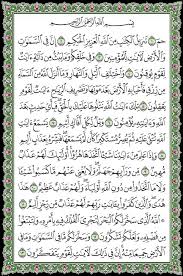 بِسْمِ ٱللَّهِ ٱلرَّحْمَٰنِ ٱلرَّحِيمِ
حمٓ ۝ تَنزِيلُ ٱلْكِتَٰبِ مِنَ ٱللَّهِ ٱلْعَزِيزِ ٱلْحَكِيمِ ۝ إِنَّ فِى ٱلسَّمَٰوَٰتِ
وَٱلْأَرْضِ لَءَايَٰتٍ لِّلْمُؤْمِنِينَ ۝ وَفِى خَلْقِكُمْ وَمَا يَبُثُّ مِن دَآبَّةٍ ءَايَٰتٌ
لِّقَوْمٍ يُوقِنُونَ ۝ وَٱخْتِلَٰفِ ٱلَّيْلِ وَٱلنَّهَارِ وَمَآ أَنزَلَ ٱللَّهُ مِنَ ٱلسَّمَآءِ
مِن رِّزْقٍ فَأَحْيَا بِهِ ٱلْأَرْضَ بَعْدَ مَوْتِهَا وَتَصْرِيفِ ٱلرِّيَٰحِ ءَايَٰتٌ
لِّقَوْمٍ يَعْقِلُونَ ۝ تِلْكَ ءَايَٰتُ ٱللَّهِ نَتْلُوهَا عَلَيْكَ بِٱلْحَقِّ فَبِأَىِّ حَدِيثٍۭ
بَعْدَ ٱللَّهِ وَءَايَٰتِهِۦ يُؤْمِنُونَ ۝ وَيْلٌ لِّكُلِّ أَفَّاكٍ أَثِيمٍ ۝ يَسْمَعُ ءَايَٰتِ
ٱللَّهِ تُتْلَىٰ عَلَيْهِ ثُمَّ يُصِرُّ مُسْتَكْبِرًا كَأَن لَّمْ يَسْمَعْهَا فَبَشِّرْهُ بِعَذَابٍ أَلِيمٍ ۝
وَإِذَا عَلِمَ مِنْ ءَايَٰتِنَا شَيْـًٔا ٱتَّخَذَهَا هُزُوًا أُو۟لَٰٓئِكَ لَهُمْ عَذَابٌ مُّهِينٌ ۝
مِّن وَرَآئِهِمْ جَهَنَّمُ وَلَا يُغْنِى عَنْهُم مَّا كَسَبُوا۟ شَيْـًٔا وَلَا مَا ٱتَّخَذُوا۟
مِن دُونِ ٱللَّهِ أَوْلِيَآءَ وَلَهُمْ عَذَابٌ عَظِيمٌ ۝ هَٰذَا هُدًى وَٱلَّذِينَ كَفَرُوا۟
بِـَٔايَٰتِ رَبِّهِمْ لَهُمْ عَذَابٌ مِّن رِّجْزٍ أَلِيمٌ ۝ ٱللَّهُ ٱلَّذِى سَخَّرَ
لَكُمُ ٱلْبَحْرَ لِتَجْرِىَ ٱلْفُلْكُ فِيهِ بِأَمْرِهِۦ وَلِتَبْتَغُوا۟
مِن فَضْلِهِۦ وَلَعَلَّكُمْ تَشْكُرُونَ ۝ وَسَخَّرَ لَكُم مَّا فِى ٱلسَّمَٰوَٰتِ وَمَا
فِى ٱلْأَرْضِ جَمِيعًا مِّنْهُ إِنَّ فِى ذَٰلِكَ لَءَايَٰتٍ لِّقَوْمٍ يَتَفَكَّرُونَ ۝